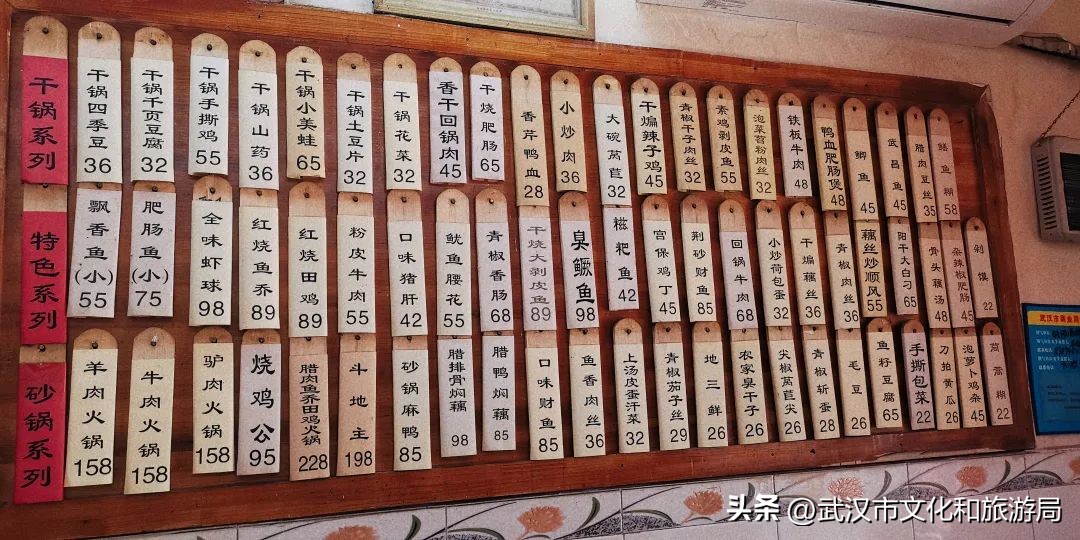 干锅系列
干锅四季豆 36
干锅千页豆腐 32
干锅手撕鸡 55
干锅山药 36
干锅小美蛙 65
干锅土豆片 32
干锅花菜 32
香干回锅肉 45
干烧肥肠 65
香芹鸭血 28
小炒肉 36
大碗莴苣 32
干煸辣子鸡 45
青椒干子肉丝 32
素鸡剥皮鱼 55
泡菜苕粉肉丝 32
铁板牛肉 48
鸭血肥肠煲 48
鲫鱼 45
武昌鱼 45
腊肉豆丝 35
鳝鱼糊 58
特色系列
飘香鱼(小) 55
肥肠鱼(小) 75
全味虾球 98
红烧鱼乔 89
红烧田鸡 89
粉皮牛肉 55
口味猪肝 42
鱿鱼腰花 55
青椒香肠 68
干烧大剥皮鱼 89
臭鳜鱼 98
糍粑鱼 42
宫保鸡丁 45
荆砂财鱼 85
回锅牛肉 68
小炒荷包蛋 32
干煸藕丝 36
青椒肉丝 36
藕丝炒顺风 55
阳干大白刁 65
骨头藕汤 48
杂辣椒肥肠 45
剁馍 22
砂锅系列
羊肉火锅 158
牛肉火锅 158
驴肉火锅 158
烧鸡公 95
腊肉鱼乔田鸡火锅 228
斗地主 198
砂锅麻鸭 85
腊排骨焖藕 98
腊鸭焖藕 85
口味财鱼 85
鱼香肉丝 36
上汤皮蛋汗菜 32
青椒茄子丝 29
地三鲜 26
农家臭干子 26
尖椒莴苣尖 26
青椒斩蛋 28
毛豆 26
鱼籽豆腐 65
手撕包菜 22
刀拍黄瓜 26
泡萝卜鸡杂 45
莴蒿糊 22
头条 @武汉市文化和旅游局